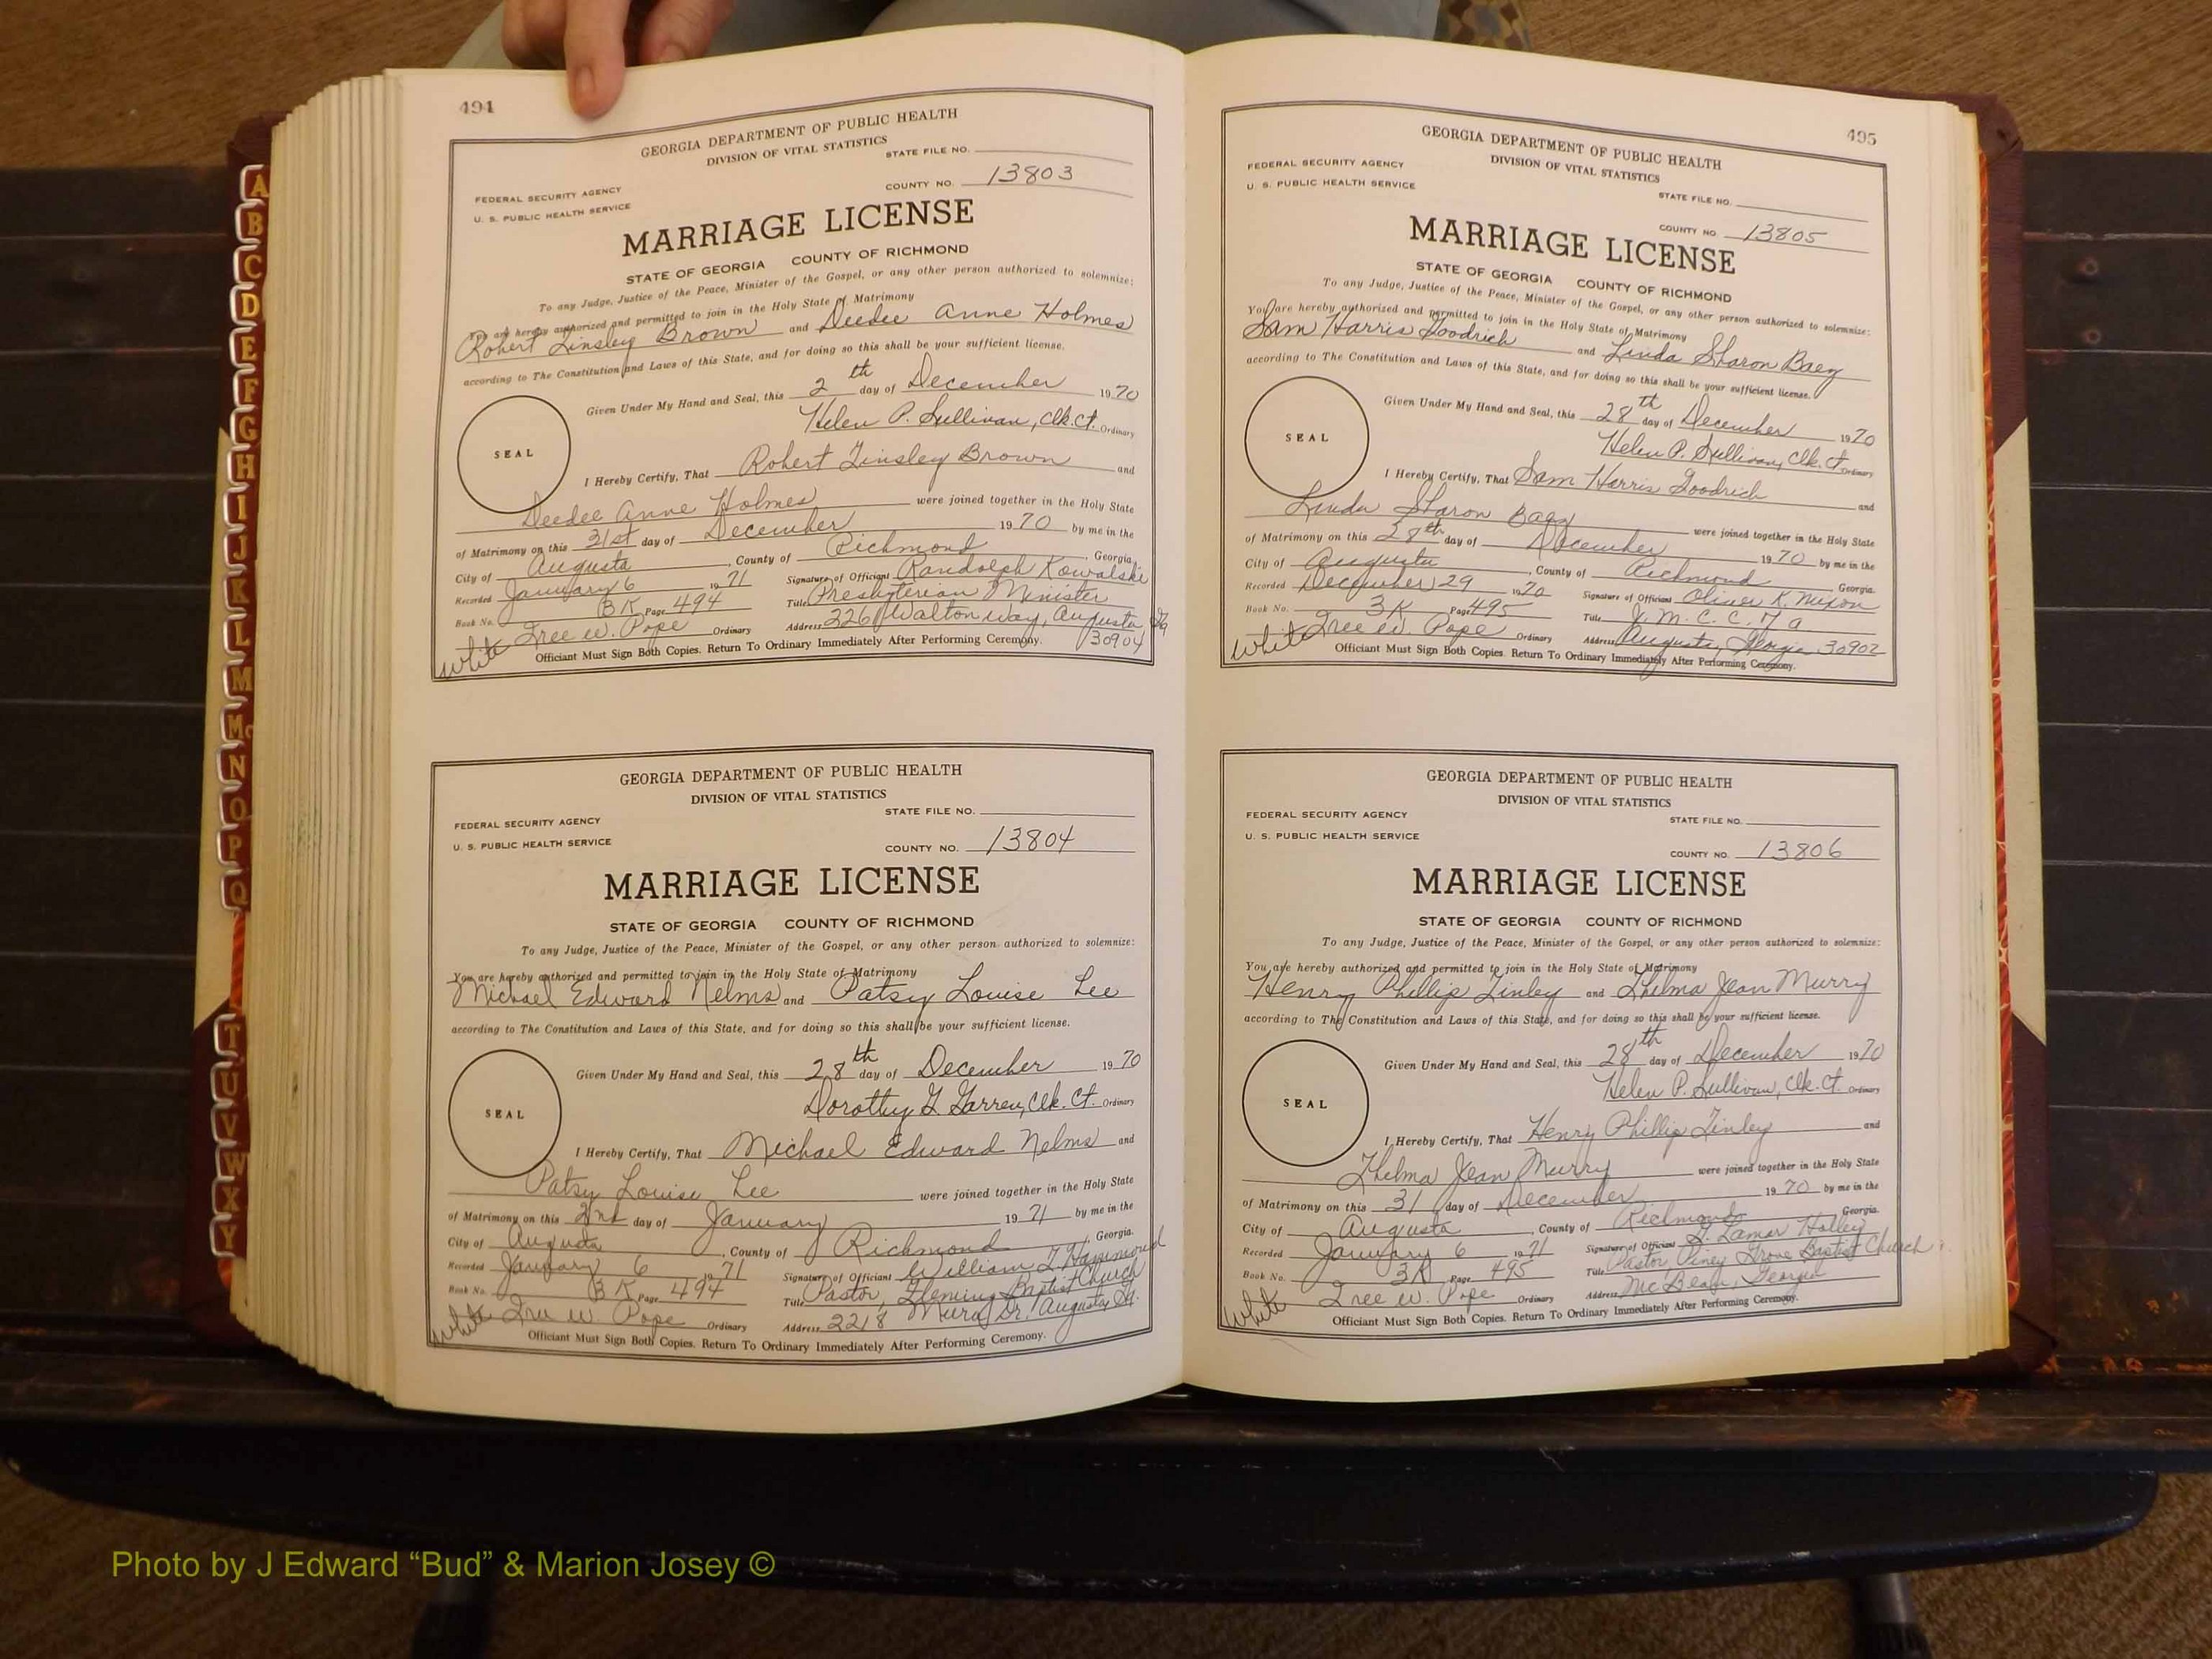 A
B
C
D
E
F
G
H
I
J
K
L
M
Mc
N
O
P
Q
T
U
V
W
X
Y
494
GEORGIA DEPARTMENT OF PUBLIC HEALTH
DIVISION OF VITAL STATISTICS
STATE FILE NO.
FEDERAL SECURITY AGENCY
COUNTY NO. 13803
U. S. PUBLIC HEALTH SERVICE
MARRIAGE LICENSE
STATE OF GEORGIA COUNTY OF RICHMOND
To any Judge, Justice of the Peace, Minister of the Gospel, or any other person authorized to solemnize:
You are hereby authorized and permitted to join in the Holy State of Matrimony
Robert Tinsley Brown and Deedee Anne Holmes
according to The Constitution and Laws of this State, and for doing so this shall be your sufficient license.
Given Under My Hand and Seal, this 2th day of December 1970
Helen P. Sullivan, Clk. Ct. Ordinary
SEAL
I Hereby Certify, That Robert Tinsley Brown and
Deedee Anne Holmes were joined together in the Holy State
of Matrimony on this 31st day of December 1970 by me in the
City of Augusta, County of Richmond, Georgia.
Recorded January 6 1971 Signature of Officiant Randolph Kowalski
Book No. 3K Page 494 Title Presbyterian Minister
Tree W. Pope Ordinary Address 2261 Walton Way, Augusta Ga
30904
White Officiant Must Sign Both Copies. Return To Ordinary Immediately After Performing Ceremony.
GEORGIA DEPARTMENT OF PUBLIC HEALTH
DIVISION OF VITAL STATISTICS
STATE FILE NO.
FEDERAL SECURITY AGENCY
U. S. PUBLIC HEALTH SERVICE
COUNTY NO. 13804
MARRIAGE LICENSE
STATE OF GEORGIA COUNTY OF RICHMOND
To any Judge, Justice of the Peace, Minister of the Gospel, or any other person authorized to solemnize:
You are hereby authorized and permitted to join in the Holy State of Matrimony
Michael Edward Nelms and Patsy Louise Lee
according to The Constitution and Laws of this State, and for doing so this shall be your sufficient license.
Given Under My Hand and Seal, this 28th day of December 1970
Dorothy Clk. Ct. Ordinary
SEAL
I Hereby Certify, That Michael Edward Nelms and
Patsy Louise Lee were joined together in the Holy State
of Matrimony on this 2nd day of January 1971 by me in the
City of Augusta, County of Richmond, Georgia.
Recorded January 6 1971 Signature of Officiant William Hammond
Book No. 3K Page 494 Title Pastor, Fleming Baptist Church
Tree W. Pope Ordinary Address 2218 Mura Dr. Augusta, Ga.
White Officiant Must Sign Both Copies. Return To Ordinary Immediately After Performing Ceremony.
495
GEORGIA DEPARTMENT OF PUBLIC HEALTH
DIVISION OF VITAL STATISTICS
FEDERAL SECURITY AGENCY
U. S. PUBLIC HEALTH SERVICE
STATE FILE NO.
COUNTY NO. 13805
MARRIAGE LICENSE
STATE OF GEORGIA COUNTY OF RICHMOND
To any Judge, Justice of the Peace, Minister of the Gospel, or any other person authorized to solemnize:
You are hereby authorized and permitted to join in the Holy State of Matrimony
Sam Harris Goodrich and Linda Sharon
according to The Constitution and Laws of this State, and for doing so this shall be your sufficient license.
Given Under My Hand and Seal, this 28th day of December 1970
Helen P. Sullivan, Clk. Ct. Ordinary
SEAL
I Hereby Certify, That Sam Harris Goodrich and
Linda Sharon were joined together in the Holy State
of Matrimony on this 28th day of December 1970 by me in the
City of Augusta, County of Richmond Georgia.
Recorded December 29 1970 Signature of Officiant Oliver K. Mixon
Book No. 3K Page 495 Title
Tree W. Pope Ordinary Address Augusta, Georgia 30902
White Officiant Must Sign Both Copies. Return To Ordinary Immediately After Performing Ceremony.
GEORGIA DEPARTMENT OF PUBLIC HEALTH
DIVISION OF VITAL STATISTICS
FEDERAL SECURITY AGENCY
STATE FILE NO.
U. S. PUBLIC HEALTH SERVICE
COUNTY NO. 13806
MARRIAGE LICENSE
STATE OF GEORGIA COUNTY OF RICHMOND
To any Judge, Justice of the Peace, Minister of the Gospel, or any other person authorized to solemnize:
You are hereby authorized and permitted to join in the Holy State of Matrimony
Henry Phillip Tinley and Thelma Jean Murry
according to The Constitution and Laws of this State, and for doing so this shall be your sufficient license.
Given Under My Hand and Seal, this 28th day of December 1970
Helen P. Sullivan, Clk. Ct. Ordinary
SEAL
I Hereby Certify, That Henry Phillip Tinley and
Thelma Jean Murry were joined together in the Holy State
of Matrimony on this 31 day of December 1970 by me in the
City of Augusta, County of Richmond Georgia.
Recorded January 6 1971 Signature of Officiant Lamar Holley
Book No. 3K Page 495 Title Pastor Piney Grove Baptist Church
Tree W. Pope Ordinary Address McBean, Georgia
White Officiant Must Sign Both Copies. Return To Ordinary Immediately After Performing Ceremony.
Photo by J Edward “Bud” & Marion Josey ©